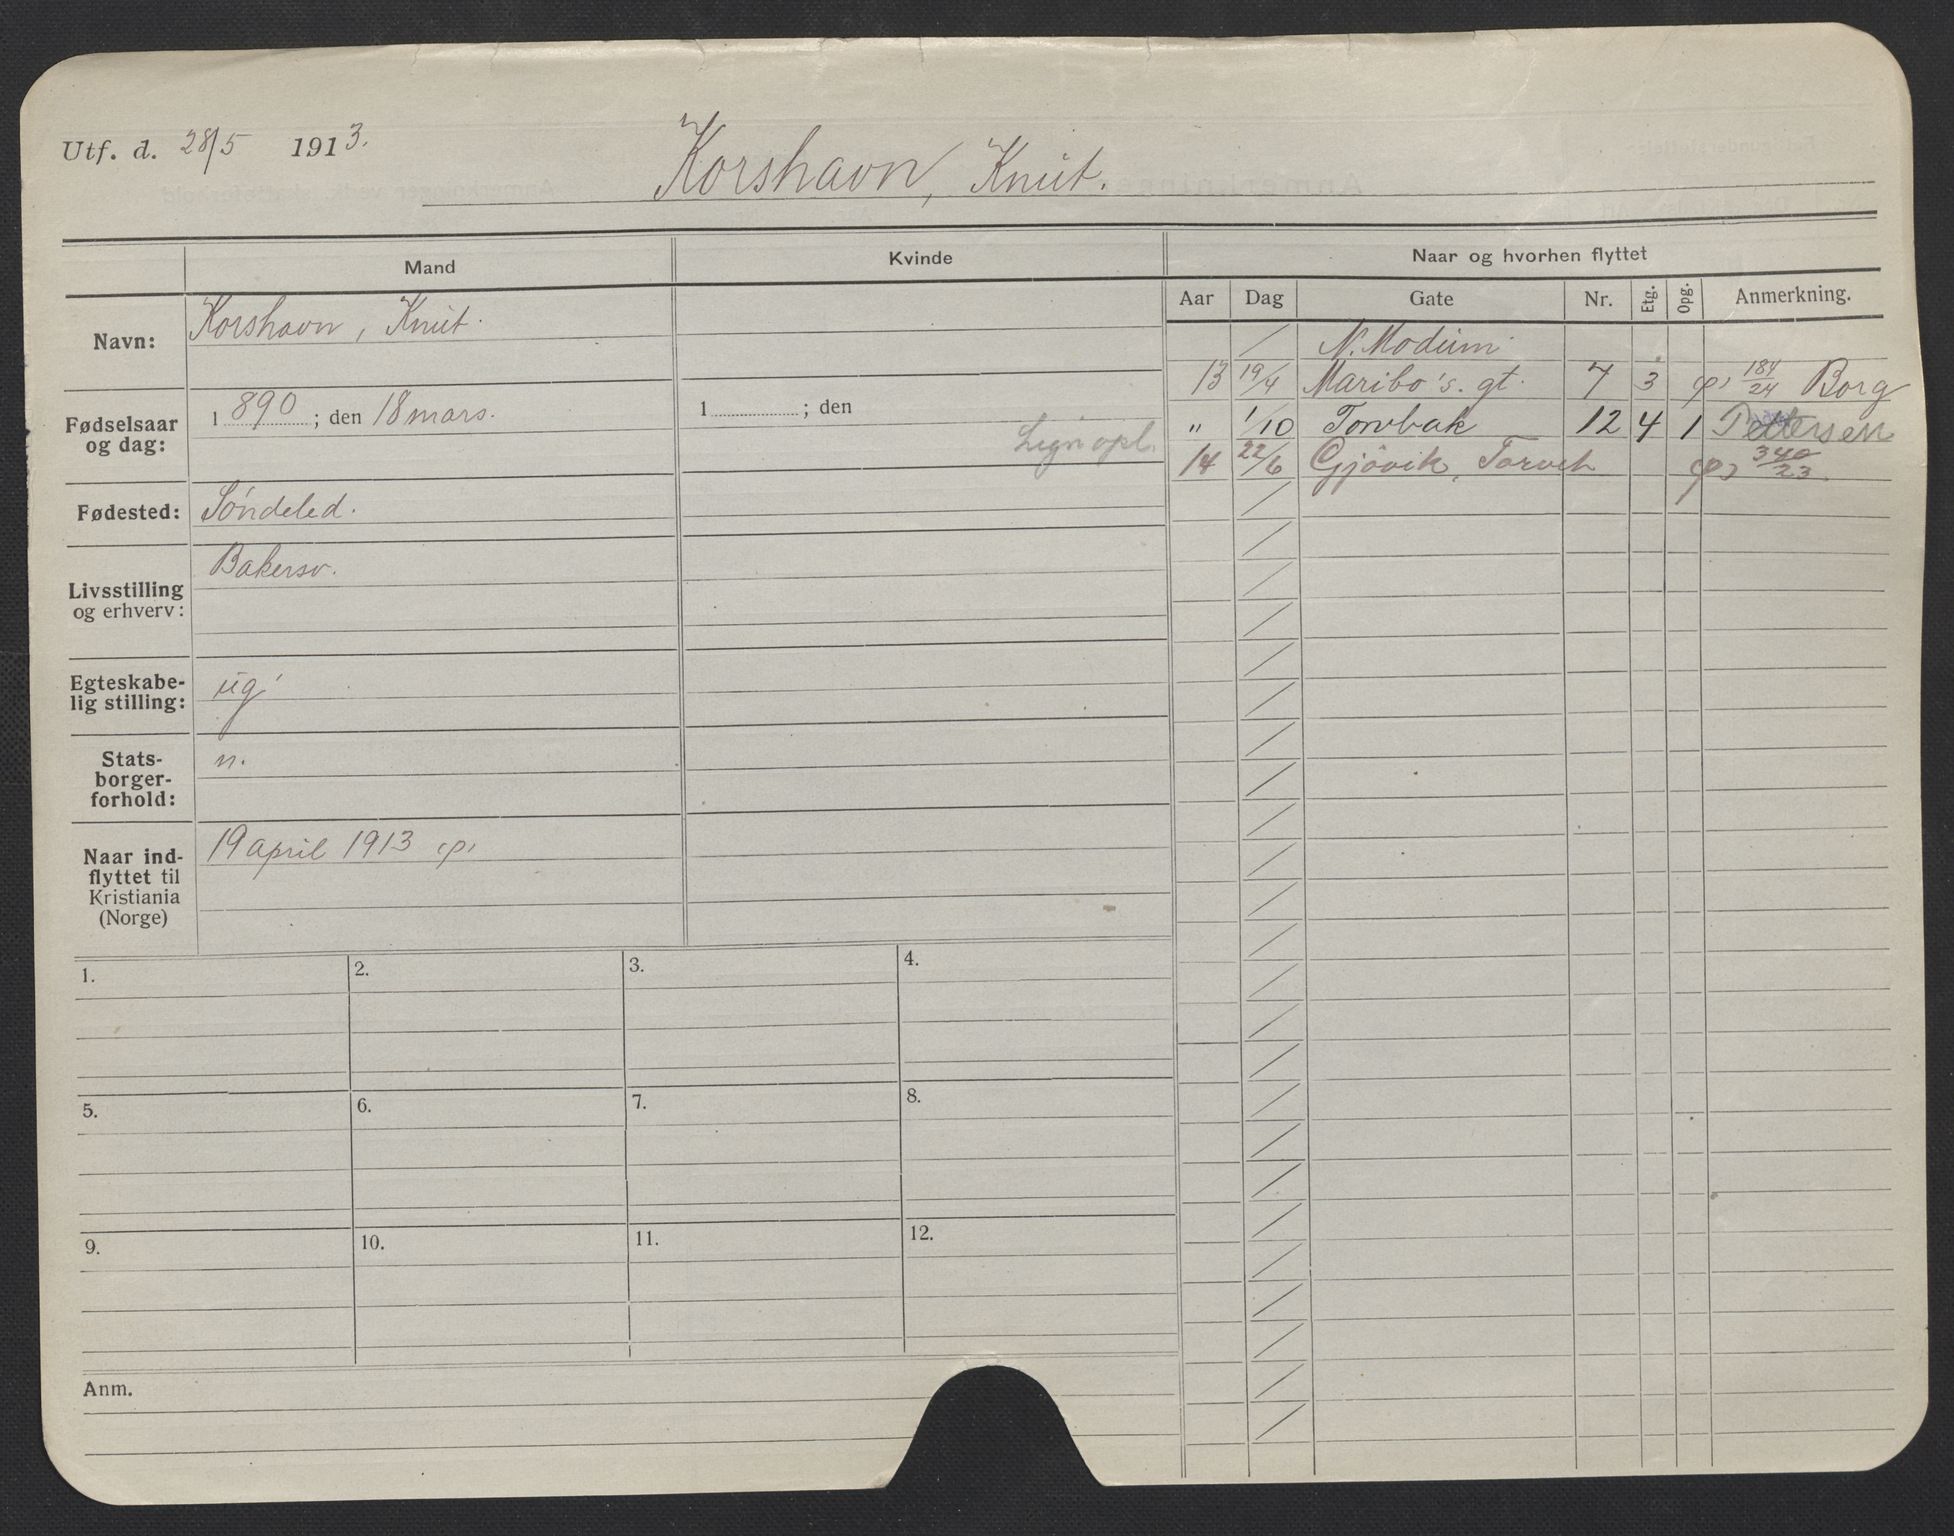 Utf. d. 28/5 1913.
Korshavn, Knut.
Mand
Kvinde
Naar og hvorhen flyttet
Aar Dag Gate Nr. Etg. Opg. Anmerkning.
Navn: Korshavn, Knut.
Fødselsaar og dag: 1890; den 18 mars.
1 ; den
Lign opl.
Fødested: Söndeled.
Livsstilling og erhverv: Bakersv.
Egteskabe-
lig stilling: ug
Stats-
borger-
forhold: n.
Naar ind-
flyttet til
Kristiania
(Norge)
19 april 1913 (p)
N. Modum
13 19/4 Maribo's. gt. 7 3 (p) 184/24 Borg
" 1/10 Torvbak 12 4 1 Pettersen
14 22/6 Gjövik, Torvet (p) 340/23
1. 2. 3. 4.
5. 6. 7. 8.
9. 10. 11. 12.
Anm.